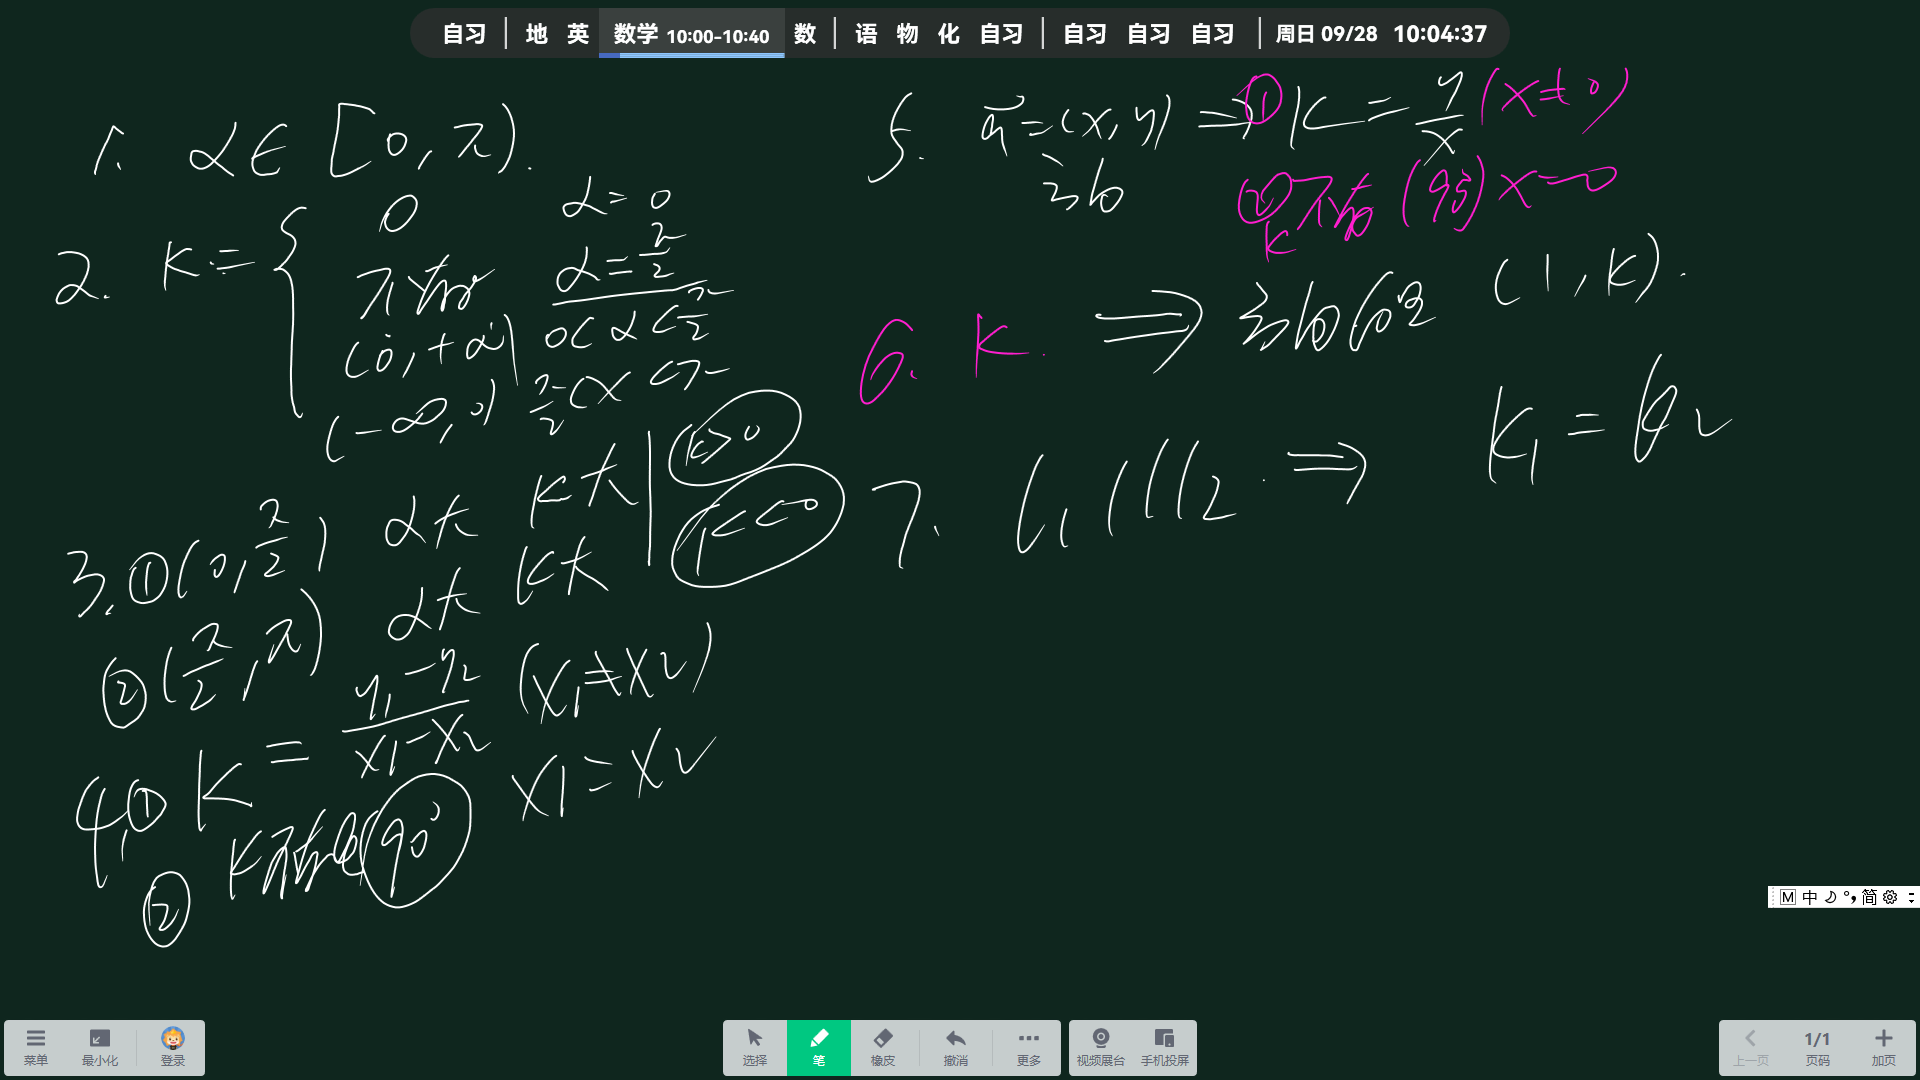 自习 | 地 英 数学 10:00-10:40 数 | 语 物 化 自习 | 自习 自习 自习 | 周日 09/28 10:04:37
1. α∈[0,π).
2. k= { 0 α=0
不存在 α=π/2
(0,+∞) 0<α<π/2
(-∞,0) π/2<α<π
3. ①(0,π/2) α大 k大 | k>0
②(π/2,π) α大 k大 k<0
4. ① k=(y₁-y₂)/(x₁-x₂) (x₁≠x₂)
② k不存在(90° x1=x2
5. a⃗=(x,y) ⇒ ① k=y/x (x≠0)
方向
② k不存在(90°) x=0
6. k. ⇒ 方向向量 (1,k).
7. l₁∥l₂ ⇒ k₁=k₂
M 中 简
菜单 最小化 登录 选择 笔 橡皮 撤消 更多 视频展台 手机投屏 上一页 1/1 页码 加页